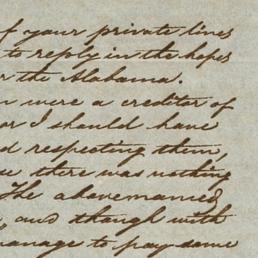 of your private lines
to reply in the hopes
or the Alabama.
n were a creditor of
or I should have
d respecting them,
se there was nothing
The abovenamed
, and though with
manage to pay some